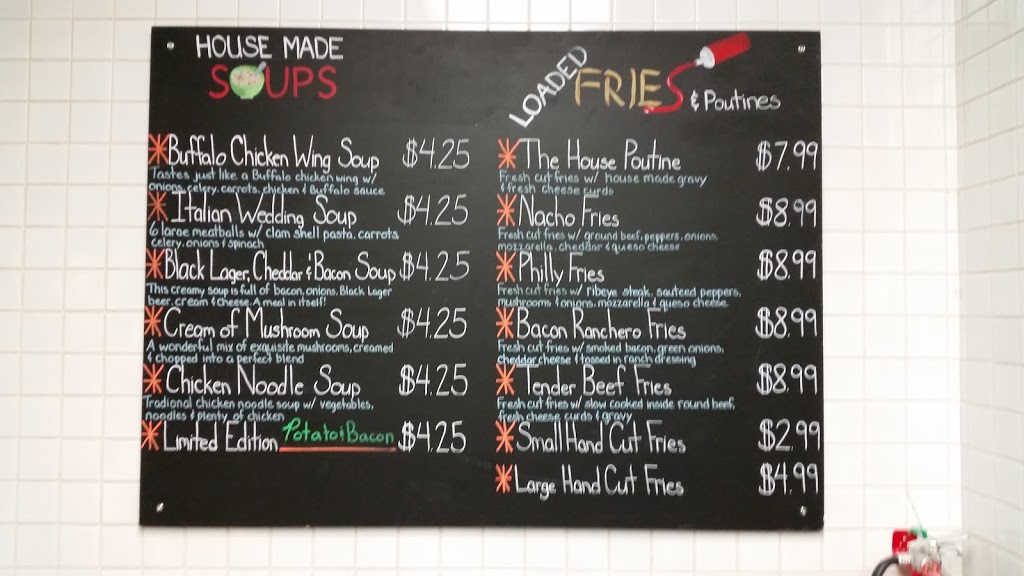 HOUSE MADE
SOUPS
*Buffalo Chicken Wing Soup $4.25
Tastes just like a Buffalo chicken wing w/
onions, celery, carrots, chicken & Buffalo sauce
*Italian Wedding Soup $4.25
6 large meatballs w/ clam shell pasta, carrots
celery, onions & spinach
*Black Lager, Cheddar & Bacon Soup $4.25
This creamy soup is full of bacon, onions, Black Lager
beer, cream & cheese. A meal in itself!
*Cream of Mushroom Soup $4.25
A wonderful mix of exquisite mushrooms, creamed
& chopped into a perfect blend
*Chicken Noodle Soup $4.25
Tradional chicken noodle soup w/ vegetables,
noodles & plenty of chicken
*Limited Edition Potato & Bacon $4.25
LOADED FRIES & Poutines
*The House Poutine $7.99
Fresh cut fries w/ house made gravy
& fresh cheese curds
*Nacho Fries $8.99
Fresh cut fries w/ ground beef, peppers, onions,
mozzarella, cheddar & queso cheese
*Philly Fries $8.99
Fresh cut fries w/ ribeye steak, sauteed peppers,
mushrooms & onions, mozzarella & queso cheese
*Bacon Ranchero Fries $8.99
Fresh cut fries w/ smoked bacon, green onions,
cheddar cheese & tossed in ranch dressing
*Tender Beef Fries $8.99
Fresh cut fries w/ slow cooked inside round beef,
fresh cheese curds & gravy
*Small Hand Cut Fries $2.99
*Large Hand Cut Fries $4.99